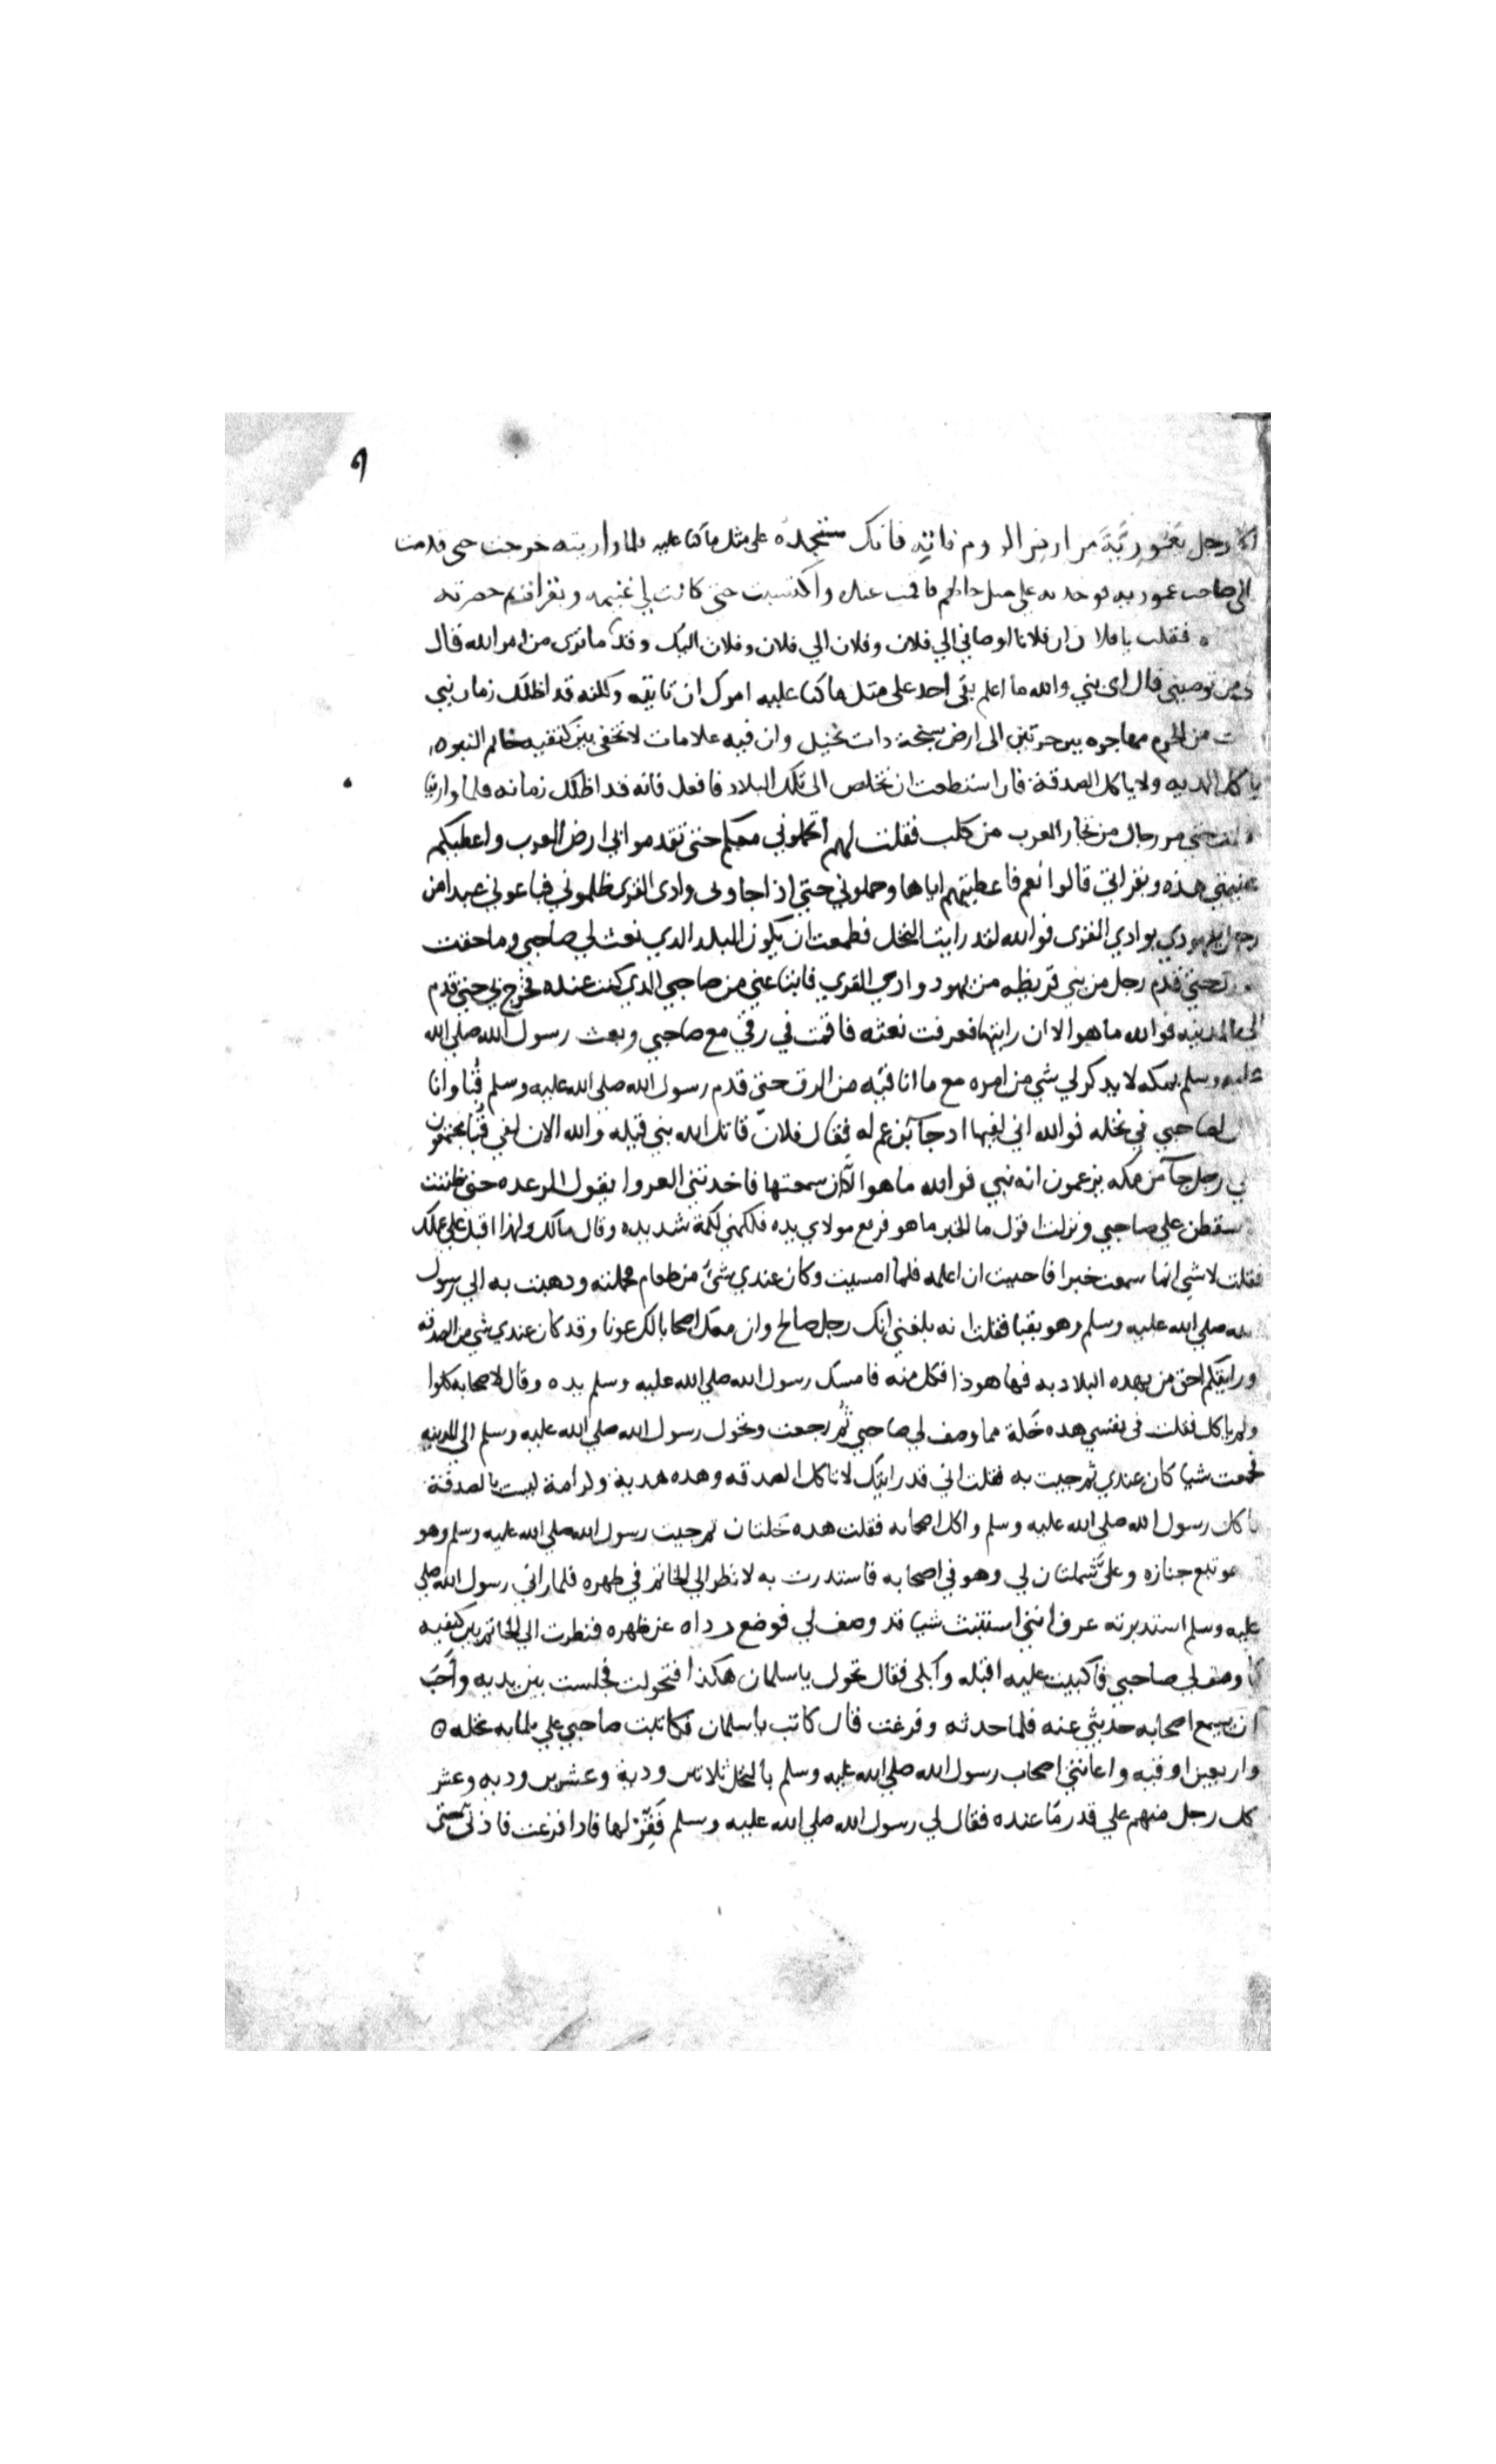 ٩
الا رجل بعمورية من ارض الروم فاته فانك ستجده على مثل ما كنا عليه فلما واريته خرجت حتى قدمت
الى صاحب عموريه فوجدته على مثل حالهم فاقمت عنده واكتسبت حتى كانت لي غنيمه وبقرات ثم حضرته
فقلت يا فلان ان فلانا اوصاني الي فلان وفلان الي فلان وفلان اليك وقد ما ترى من امر الله فال
من توصيني قال اى بني والله ما اعلم بقى احد على مثل ما كنا عليه امرك ان تاتيه ولكنه قد اظلك زمان نبي
من الحرم مهاجره بين حرتين الى ارض سبخة ذات نخيل وان فيه علامات لا تخفى بين كتفيه خاتم النبوه
ياكل الهديه ولا ياكل الصدقة فان استطعت ان تخلص الى تلك البلاد فافعل فانه قد اظلك زمانه فلما وارينا
حتى مر رجال من تجار العرب من كلب فقلت لهم اتحملوني معكم حتى تقدموا بي ارض العرب واعطيكم
غنيمتي هذه وبقراتي قالوا نعم فاعطيتهم اياها وحملوني حتى اذا جاو بى وادى القرى ظلموني فباعوني عبدا من
رجل يهودي بوادي القرى فوالله لقد رايت النخل فطمعت ان يكون البلد الدي نعت لي صاحبي وما حقت
حتى قدم رجل من بني قريظه من يهود وادي القري فابتاعني من صاحبي الدي كنت عنده فخرج بي حتى قدم
بي المدينه فوالله ما هو الا ان رايتها فعرفت نعته فاقمت في رقي مع صاحبي وبعث رسول الله صلى الله
عليه وسلم بمكه لا يدكر لي شي من امره مع ما انا فيه من الرق حتى قدم رسول الله صلى الله عليه وسلم قبا وانا
لصاحبي في نخله فوالله اني لفيها اد جا ابن عم له فقال فلان قاتل الله بني قيله والله الان لفي قبا مجتمعون
رجل جا من مكه يزعمون انه نبي فوالله ما هو الا ان سمعتها فاخدتني العروا يقول الرعده حتى ظننت
سقطن علي صاحبي ونزلت اقول ما الخبر ما هو فرفع مولاي يده فلكمني لكمة شديده وقال مالك ولهذا اقبل علي عملك
فقلت لا شي انما سمعت خبرا فاحببت ان اعلمه فلما امسيت وكان عندي شئ من طعام فحملته ودهبت به الي رسول
الله صلي الله عليه وسلم وهو بقبا فقلت انه بلغني انك رجل صالح وان معك اصحابا لك عونا وقد كان عندي شي من الصدقه
ورايتكم احق من بهده البلاد به فها هو ذا فكل منه فامسك رسول الله صلي الله عليه وسلم يده وقال لاصحابه كلوا
ولم ياكل فقلت في نفسي هده خلة مما وصف لي صاحبي ثم رجعت وتحول رسول الله صلي الله عليه وسلم الي المدينه
فجمعت شيا كان عندي ثم جيت به فقلت اني قد رايتك لا تاكل الصدقه وهده هدية وكرامة ليست بالصدقة
فاكل رسول الله صلي الله عليه وسلم واكل اصحابه فقلت هده خلتان ثم جيت رسول الله صلي الله عليه وسلم وهو
يتبع جنازه وعلي شملتان لي وهو في اصحابه فاستدرت به لانظر الي الخاتم في ظهره فلما راني رسول الله صلي
عليه وسلم استدبرته عرف انني استثبت شيا قد وصف لي فوضع رداه عن ظهره فنظرت الي الخاتم بين كتفيه
كما وصف لي صاحبي فاكببت عليه اقبله وابكي فقال تحول يا سلمان هكذا فتحولت فجلست بين يديه واحب
ان يسمع اصحابه حديثي عنه فلما حدثه وفرغت قال كاتب يا سلمان فكاتبت صاحبي علي ثلمايه نخله
واربعين اوقيه واعانني اصحاب رسول الله صلي الله عليه وسلم بالنخل ثلاثين ودية وعشرين وديه وعشر
كل رجل منهم علي قدر ما عنده فقال لي رسول الله صلي الله عليه وسلم فقر لها فادا فرغت فاذني حتى